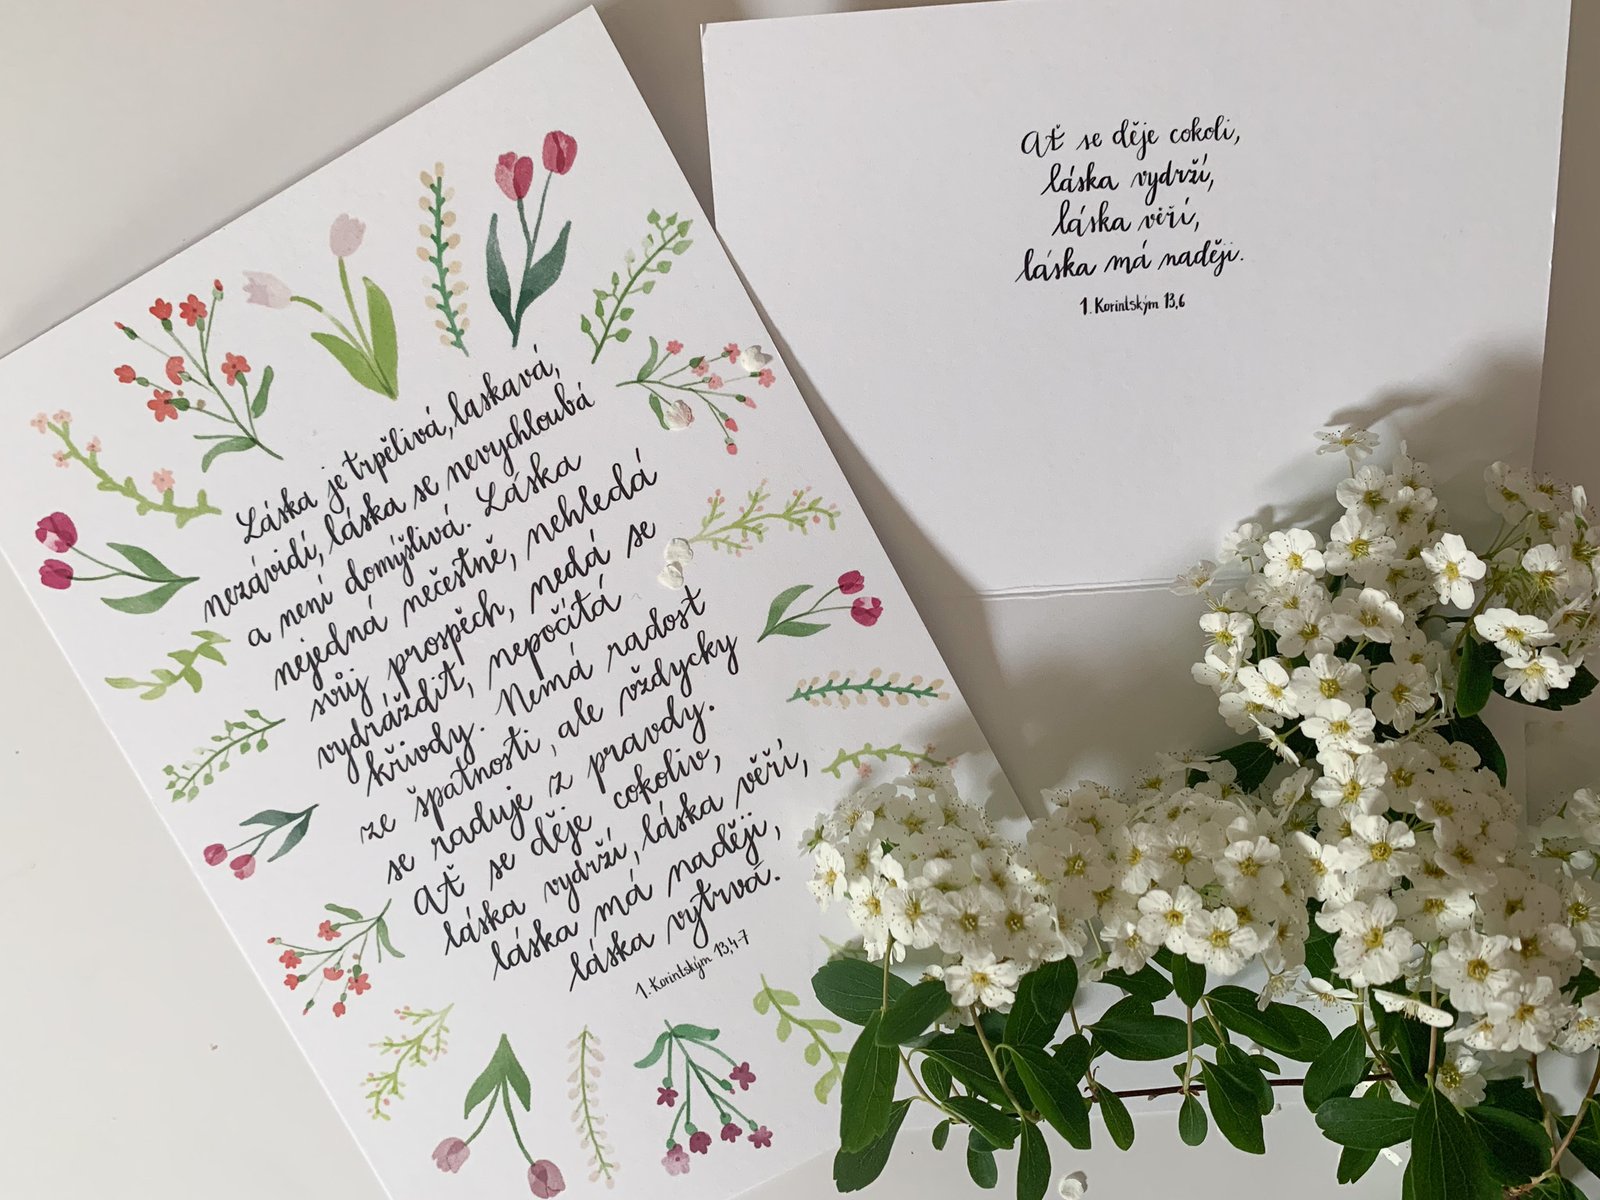 Láska je trpělivá, laskavá,
nezávidí, láska se nevychloubá
a není domýšlivá. Láska
nejedná nečestně, nehledá
svůj prospěch, nedá se
vydráždit, nepočítá
křivdy. Nemá radost
ze špatnosti, ale vždycky
se raduje z pravdy.
Ať se děje cokoliv,
láska vydrží, láska věří,
láska má naději,
láska vytrvá.
1. Korintským 13,4-7
Ať se děje cokoli,
láska vydrží,
láska věří,
láska má naději.
1. Korintským 13,6